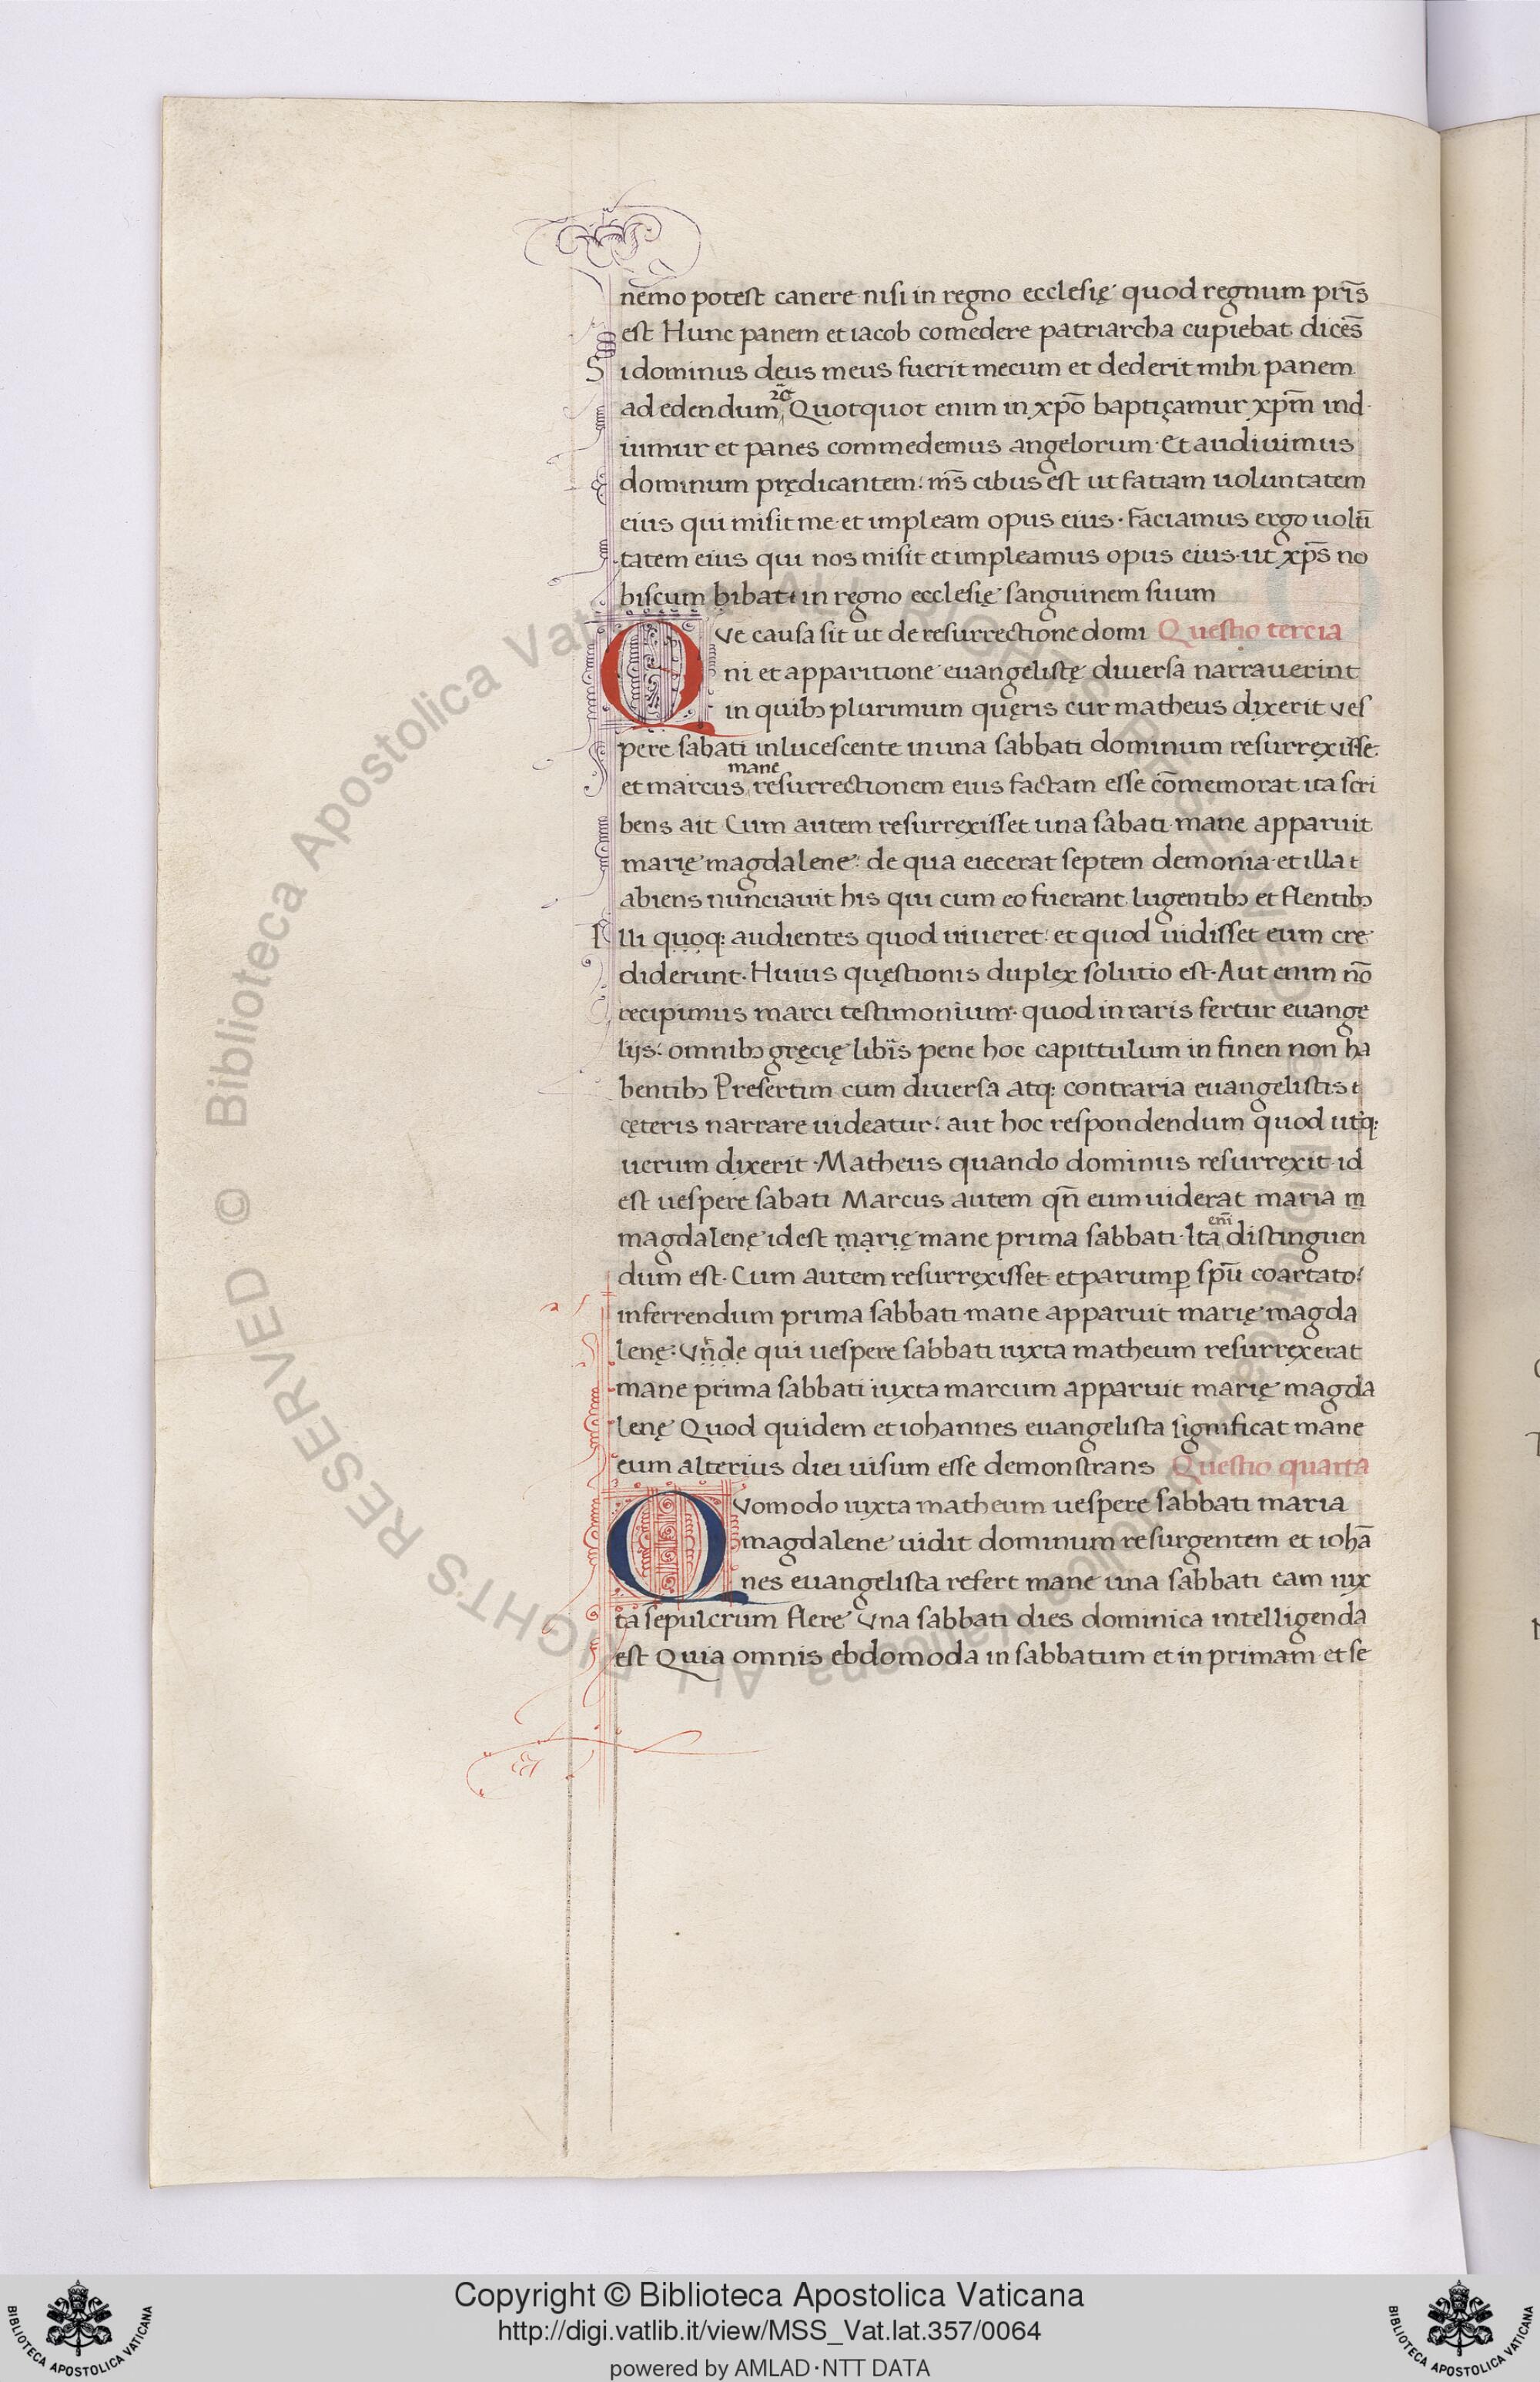 nemo potest canere nisi in regno ecclesię quod regnum pr̄is
est Hunc panem et iacob comedere patriarcha cupiebat dicēs
Si dominus deus meus fuerit mecum et dederit mihi panem
ad edendum Quotquot enim in xp̄o baptiçamur xp̄m ind
iumur et panes commedemus angelorum · Et audiuimus
dominum prędicantem: ms̄ cibus est ut fatiam uoluntatem
eius qui misit me et impleam opus eius · Faciamus ergo uolū
tatem eius qui nos misit et impleamus opus eius · ut xp̄s no
biscum bibat in regno ecclesię sanguinem suum
Qve causa sit ut de resurrectione domi Questio tercia
ni et apparitione euangelistę diuersa narrauerint
in quibꝫ plurimum quęris cur matheus dixerit ves
pere sabati inlucescente in una sabbati dominum resurrexisse
mane
et marcus resurrectionem eius factam esse cōmemorat ita scri
bens ait Cum autem resurrexisset una sabati mane apparuit
marię magdalene: de qua eiecerat septem demonia et illa
abiens nunciauit his qui cum eo fuerant lugentibꝫ et flentibꝫ
Illi quoq: audientes quod uiueret: et quod uidisset eum cre
diderunt · Huius quęstionis duplex solutio est · Aut enim nō
recipimus marci testimonium · quod in raris fertur euange
lijs: omnibꝫ gręcię libris pene hoc capittulum in finen non ha
bentibꝫ Presertim cum diuersa atq: contraria euangelistis
cęteris narrare uideatur: aut hoc respondendum quod utq:
uerum dixerit · Matheus quando dominus resurrexit · id
est uespere sabati Marcus autem qn̄ eum uiderat maria m
magdalenę id est marię mane prima sabbati · Ita distinguen
em̄
dum est · Cum autem resurrexisset et parumꝑ spū coartato:
inferrendum prima sabbati mane apparuit marię magda
lenę: Vnde qui uespere sabbati iuxta matheum resurrexerat
mane prima sabbati iuxta marcum apparuit marię magda
lenę Quod quidem et iohannes euangelista significat mane
eum alterius diei uisum esse demonstrans Questio quarta
Qvomodo iuxta matheum uespere sabbati maria
magdalene uidit dominum resurgentem et iohā
nes euangelista refert mane una sabbati eam iux
ta sepulcrum flere Vna sabbati dies dominica intelligenda
est Quia omnis ebdomoda in sabbatum et in primam et se
© Biblioteca Apostolica Vaticana ALL RIGHTS RESERVED
Copyright © Biblioteca Apostolica Vaticana
http://digi.vatlib.it/view/MSS_Vat.lat.357/0064
powered by AMLAD·NTT DATA
BIBLIOTECA APOSTOLICA VATICANA
BIBLIOTECA APOSTOLICA VATICANA